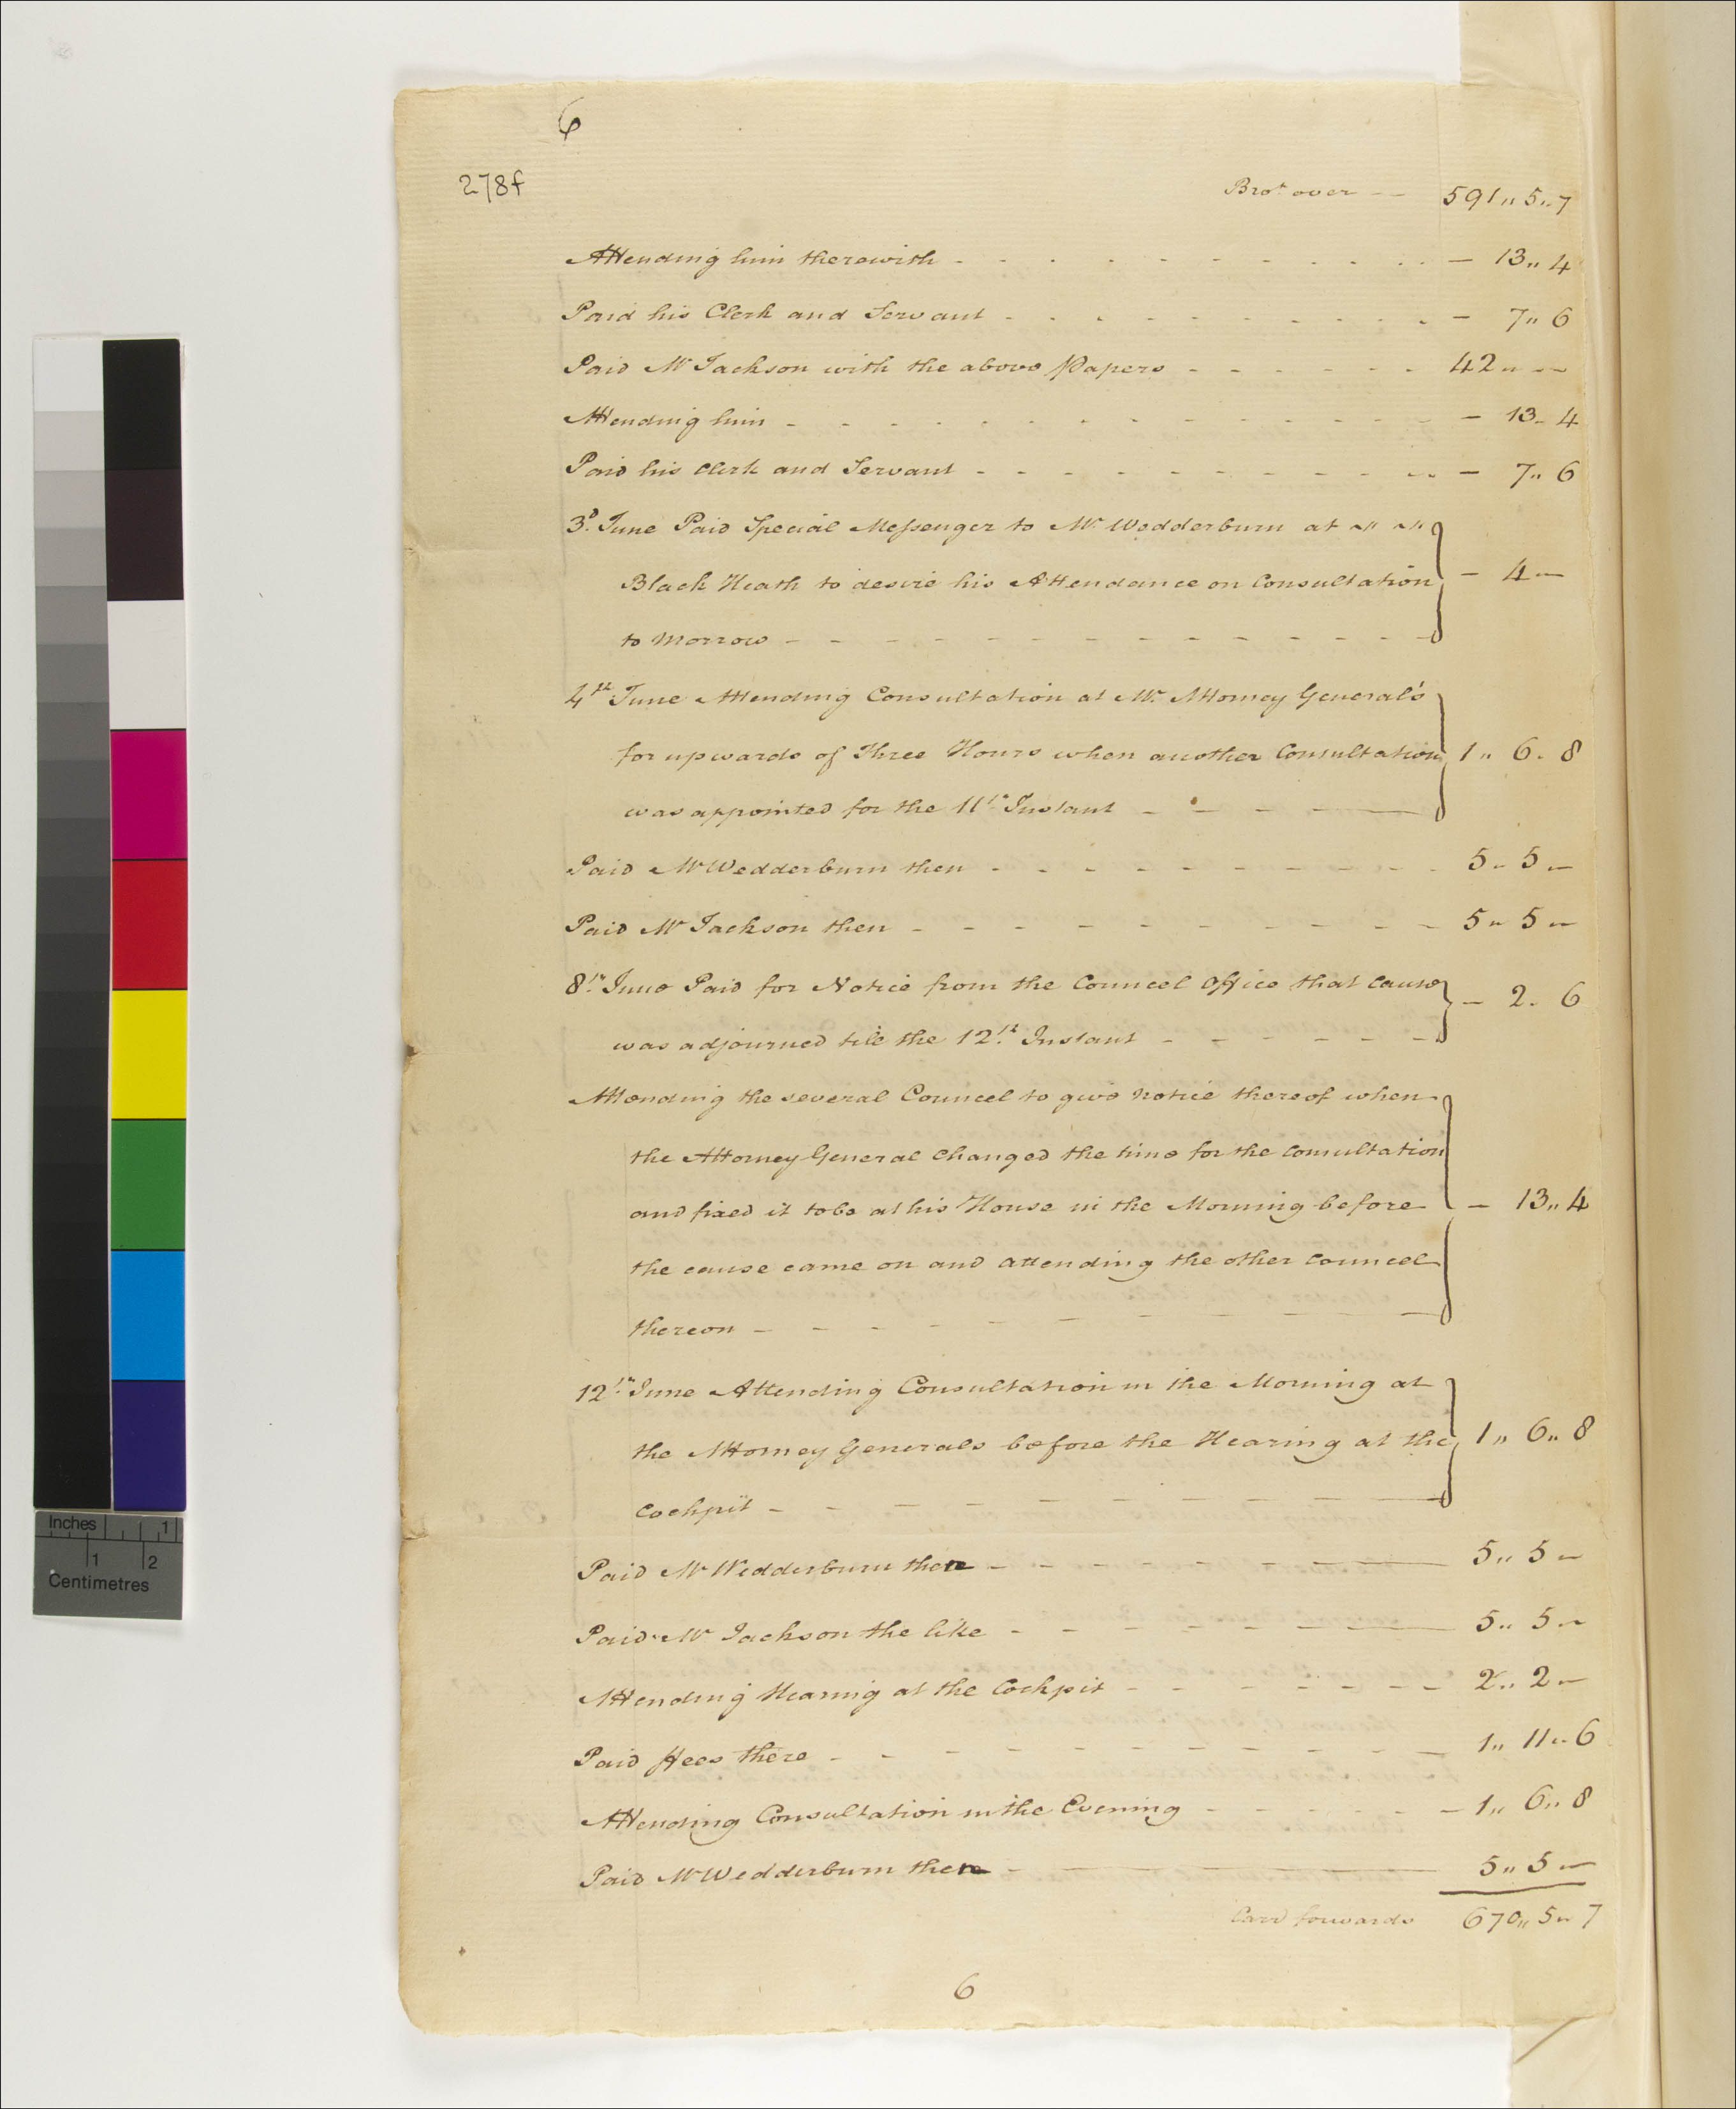 6
278f
Bro.t over -- 591,, 5,, 7
Attending him therewith - - - - 13,, 4
Paid his Clerk and Servant - - - - 7,, 6
Paid Mr Jackson with the above Papers - - - 42 ,, - -
Attending him - - - - 13 - 4
Paid his Clerk and Servant - - - - 7,, 6
3.d June Paid Special Messenger to Mr. Wedderburn at
Black Heath to desire his Attendance on Consultation - 4 -
to Morrow - - - -
4th June Attending Consultation at Mr. Attorney General's
for upwards of Three Hours when another Consultation 1,, 6 - 8
was appointed for the 11th Instant - - - -
Paid Mr Wedderburn then - - - - 5 - 5 -
Paid Mr Jackson then - - - - 5 ,, 5 -
8th June Paid for Notice from the Councel Office that Cause - 2 - 6
was adjourned till the 12th Instant - - - -
Attending the several Councel to give notice thereof when
the Attorney General Changed the time for the Consultation
and fixed it to be at his House in the Morning before - 13,, 4
the cause came on and attending the other Councel
thereon - - - -
12th June Attending Consultation in the Morning at
the Attorney Generals before the Hearing at the 1,, 6,, 8
Cockpit - - - -
Paid Mr Wedderburn then - - - - 5,, 5 -
Paid Mr Jackson the like - - - - 5,, 5 -
Attending Hearing at the Cockpit - - - - 2,, 2 -
Paid ffees there - - - - 1,, 11,, 6
Attending Consultation in the Evening - - - - 1,, 6,, 8
Paid Mr Wedderburn then - - - - 5,, 5 -
Carrd forwards 670,, 5 ,, 7
6
Inches 1
1 2
Centimetres